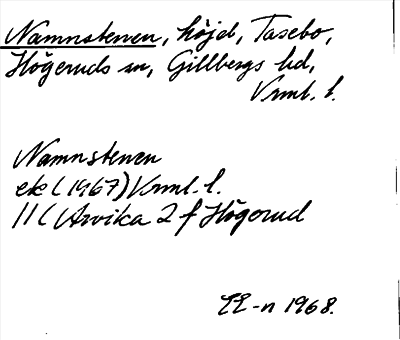 Namnstenen, höjd, Tasebo,
Högeruds sn, Gillbergs hd,
Vrml. l.
Namnstenen
ek (1967) Vrml. l.
11C Arvika 2 f Högerud
EE-n 1968.